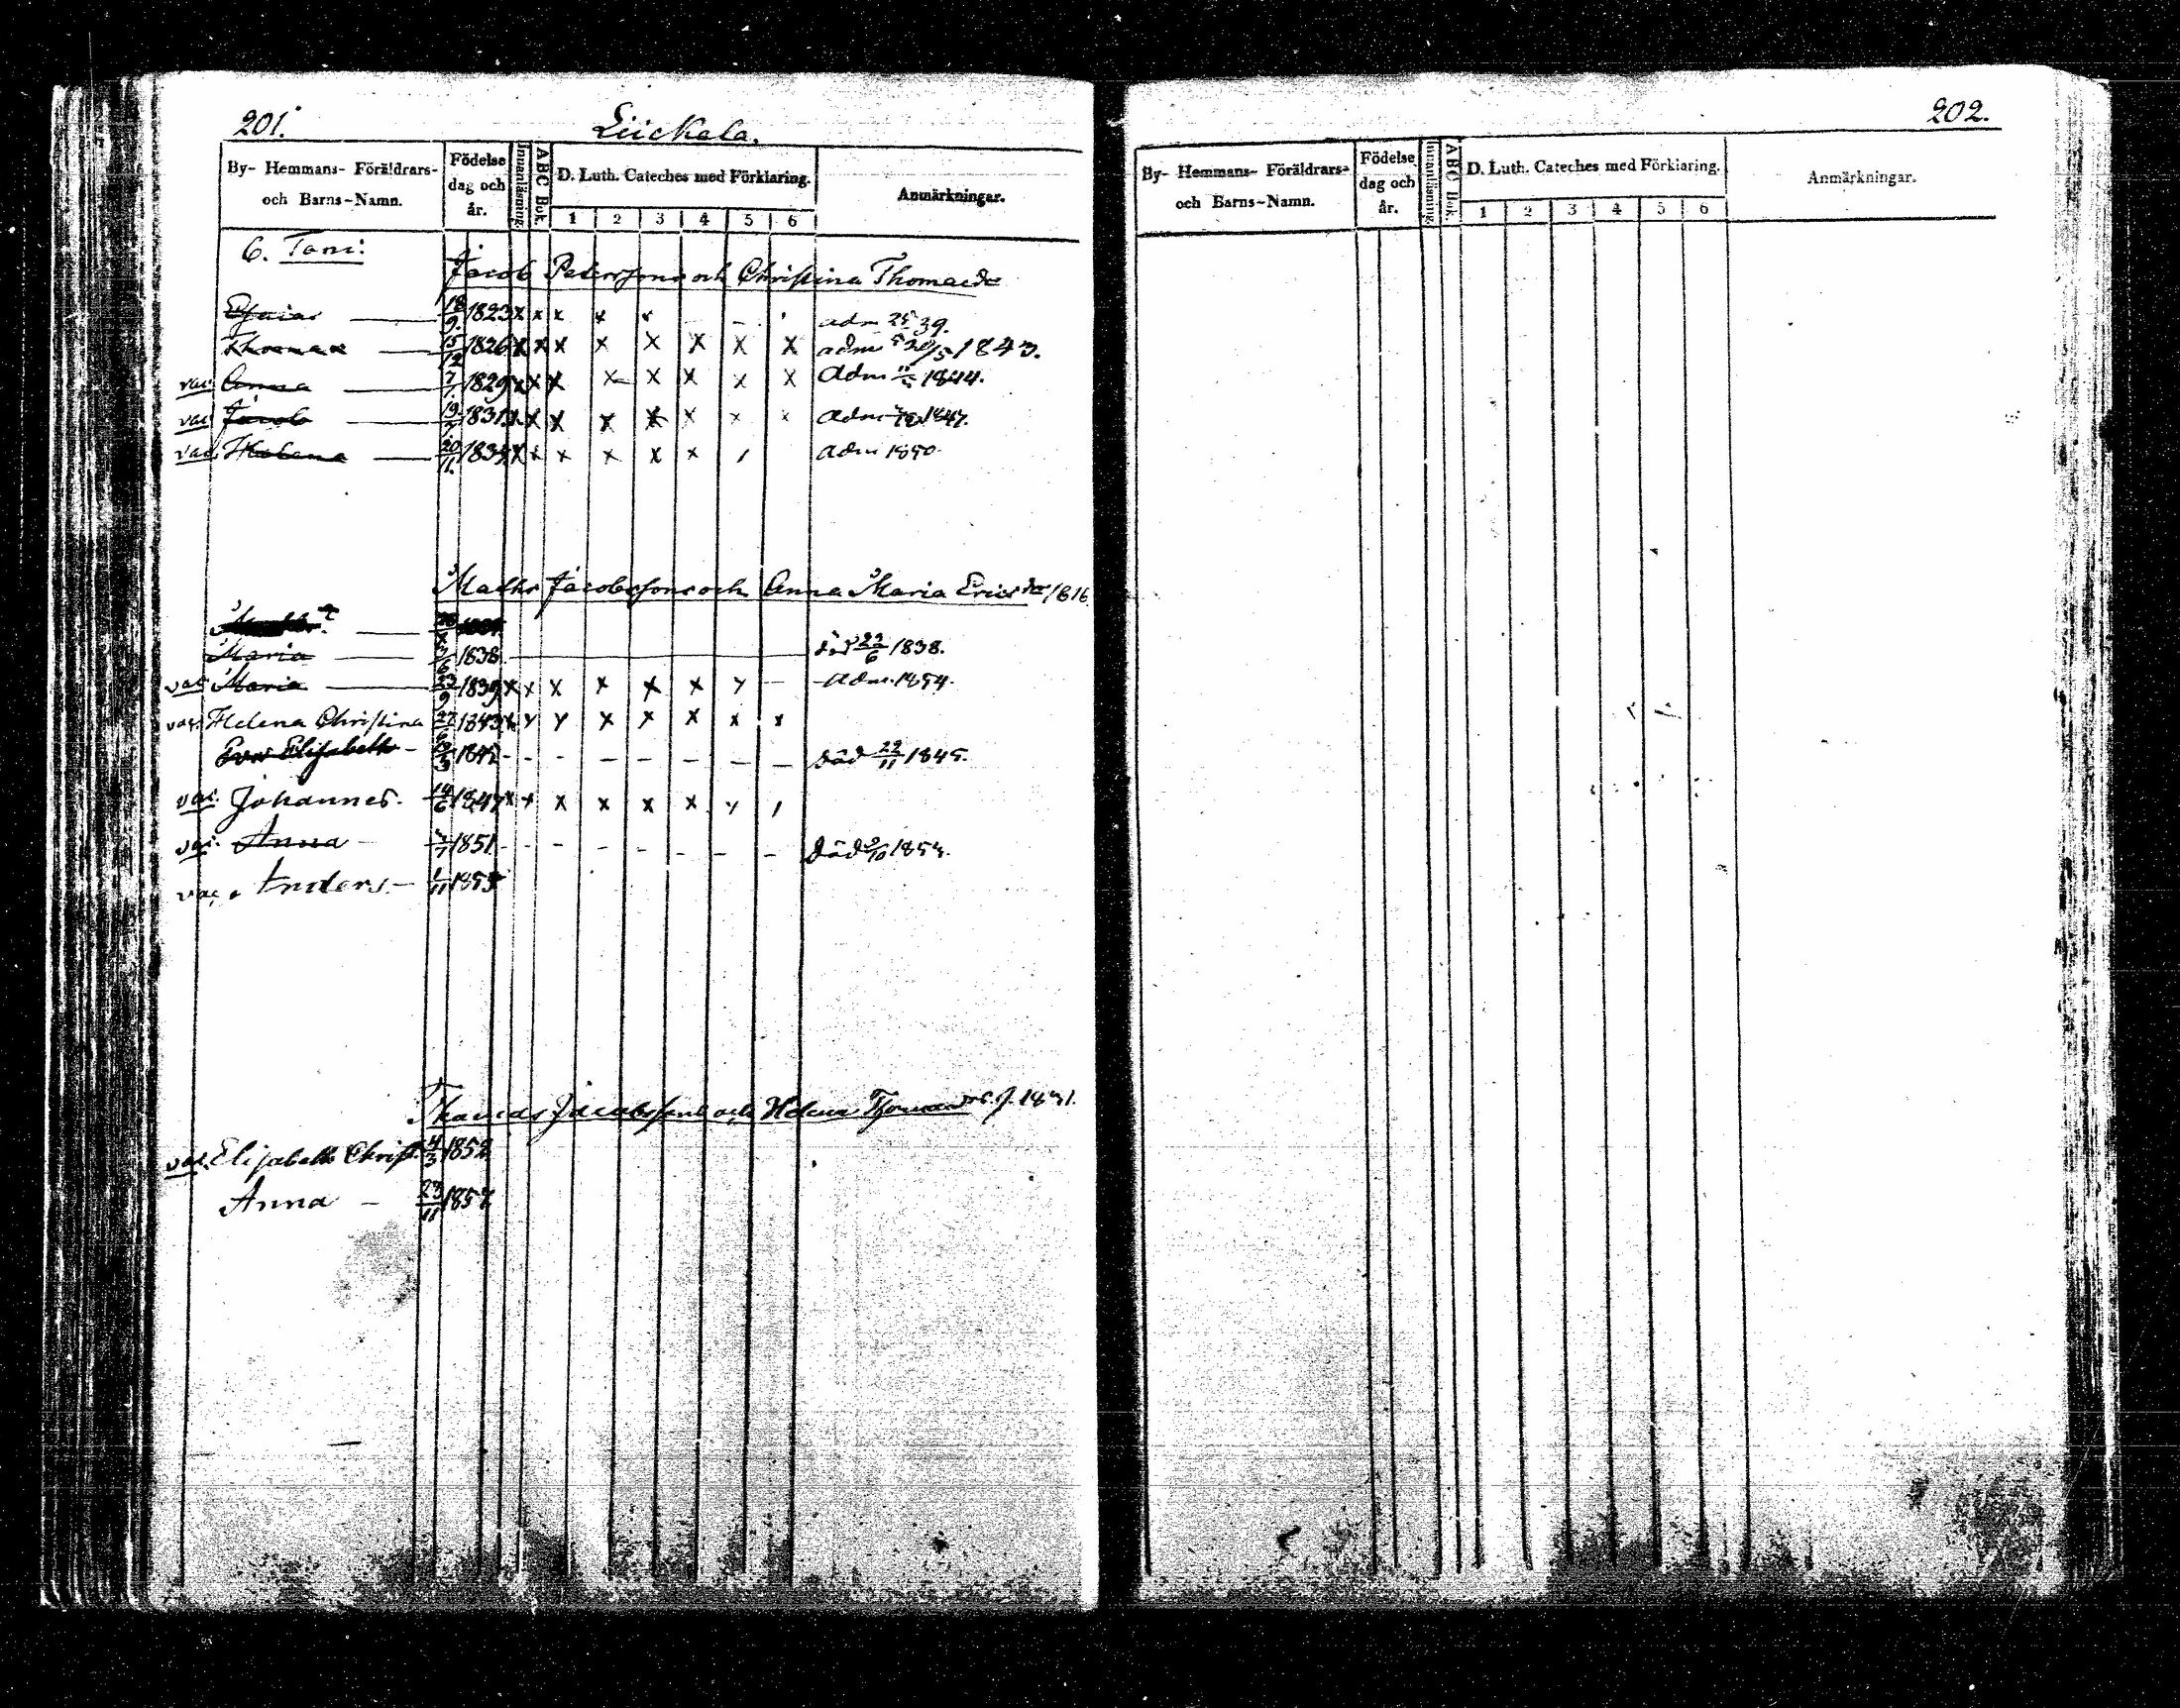 201.
Liickala.
By- Hemmans- Föräldrars-
och Barns-Namn.
Födelse
dag och
år.
Innanläsning.
ABC Bok.
D. Luth. Cateches med Förklaring.
1 2 3 4 5 6
Anmärkningar.
6. Toni:
Jacob Peterssons och Christina Thomaedr
Esaias 18/9. 1823 x x x x x adm 25 39.
Thomas 15/12 1826 x x x x x x x x adm 1843.
vac. Anna 7/1. 1829 x x x x x x x x Adm 1844.
vac. Jacob 19/7 1831 x x x x x x x x adm 1847.
vac. Helena 20/1. 183 x x x x x x adm 1850.
Maths Jacobssons och Anna Maria Ericsdr 1816
Maria 1838. död 22/6 1838.
vac. Maria 23/9 1839 x x x x x x x adm. 1854.
vac. Helena Christina 27 1843 x x x x x x x x
Eva Elisabeth 1845 död 22/11 1845.
vac. Johannes. 14/6 1847 x x x x x x
vac. Anna 1851 död 9/10 185
vac. Anders. 1/11 1853
Thomas Jacobssons och Helena f. 1831.
vac. Elisabeth Christ. 4/3 1852
Anna 23/11 1857
202.
By- Hemmans- Föräldrars-
och Barns-Namn.
Födelse
dag och
år.
Innanläsning.
ABC Bok.
D. Luth. Cateches med Förklaring.
1 2 3 4 5 6
Anmärkningar.